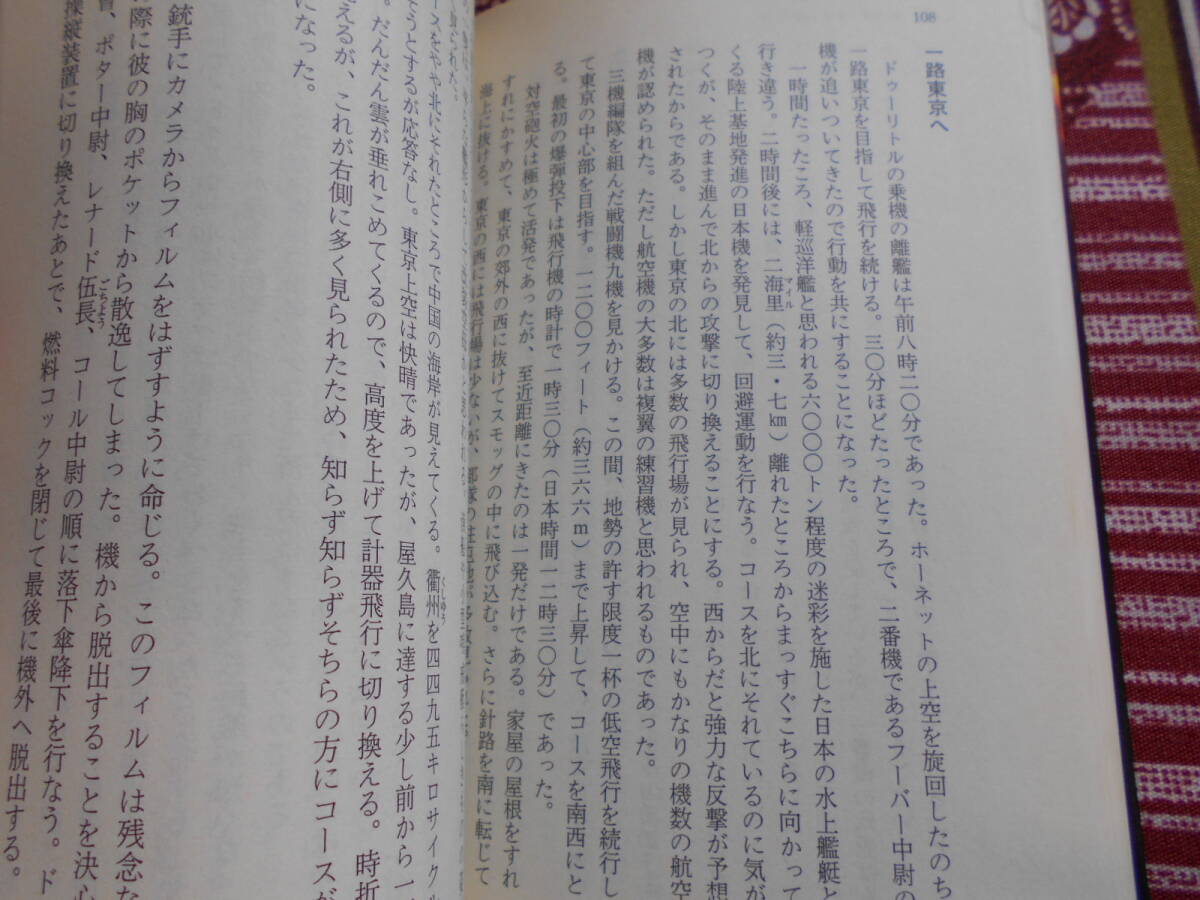 108
一路東京へ
ドゥーリトルの乗機の離艦は午前八時二〇分であった。ホーネットの上空を旋回したのち
一路東京を目指して飛行を続ける。三〇分ほどたったところで、二番機であるフーバー中尉の
機が追いついてきたので行動を共にすることになった。
一時間たったころ、軽巡洋艦と思われる六〇〇〇トン程度の迷彩を施した日本の水上艦艇と
行き違う。二時間後には、二海里（約三・七km）離れたところからまっすぐこちらに向かって
マイル
くる陸上基地発進の日本機を発見して、回避運動を行なう。コースを北にそれているのに気が
つくが、そのまま進んで北からの攻撃に切り換えることにする。西からだと強力な反撃が予想
されたからである。しかし東京の北には多数の飛行場が見られ、空中にもかなりの機数の航空
機が認められた。ただし航空機の大多数は複翼の練習機と思われるものであった。
三機編隊を組んだ戦闘機九機を見かける。この間、地勢の許す限度一杯の低空飛行を続行し
て東京の中心部を目指す。一二〇〇フィート（約三六六m）まで上昇して、コースを南西にと
る。最初の爆弾投下は飛行機の時計で一時三〇分（日本時間一二時三〇分）であった。
対空砲火は極めて活発であったが、至近距離にきたのは一発だけである。家屋の屋根をすれ
すれにかすめて、東京の郊外の西に抜けてスモッグの中に飛び込む。さらに針路を南に転じて
海上に抜ける。東京の西には飛行場は少ないが、部隊の
ースをやや北にそれたところで中国の海岸が見えてくる。衢州を四四九五キロサイクル
くしゅう
そうとするが応答なし。東京上空は快晴であったが、屋久島に達する少し前から一
。だんだん雲が垂れこめてくるので、高度を上げて計器飛行に切り換える。時折
えるが、これが右側に多く見られたため、知らず知らずそちらの方にコースが
になった。
銃手にカメラからフィルムをはずすように命じる。このフィルムは残念な
際に彼の胸のポケットから散逸してしまった。機から脱出することを決心
、ポター中尉、レナード伍長、コール中尉の順に落下傘降下を行なう。ド
ごちょう
操縦装置に切り換えたあとで、燃料コックを閉じて最後に機外へ脱出する。